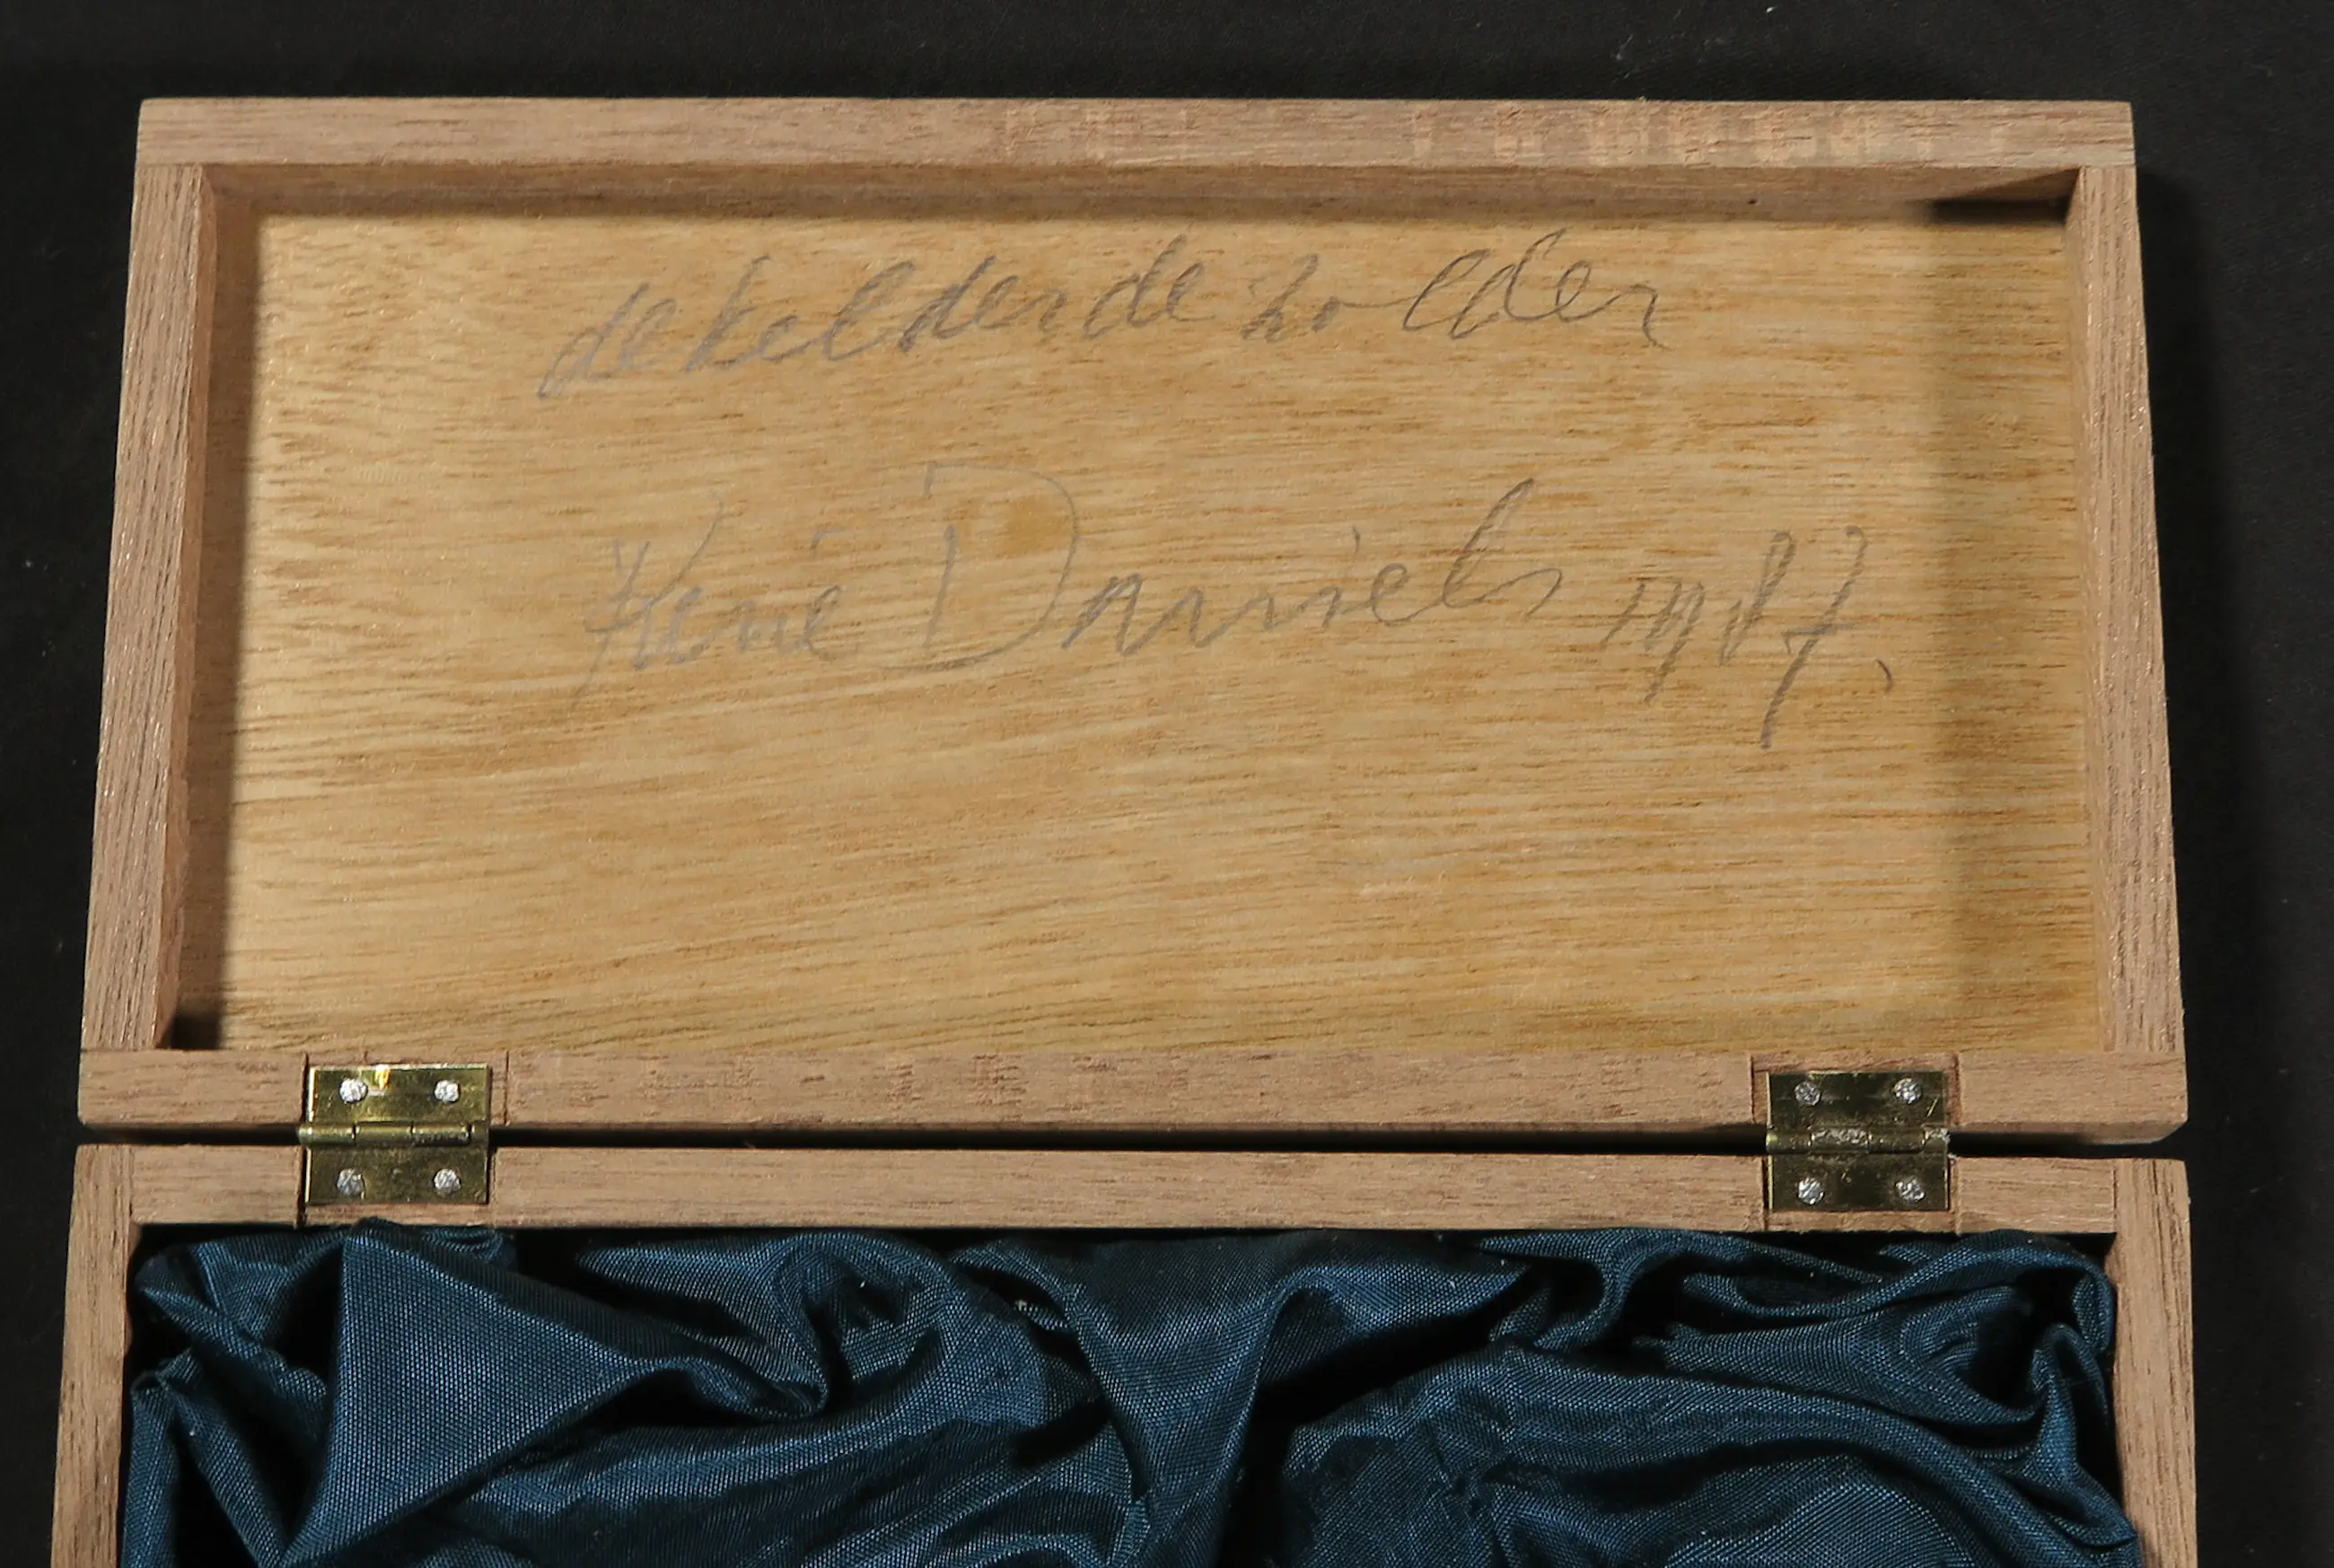 de kelder de zolder
René Daniels 1987.